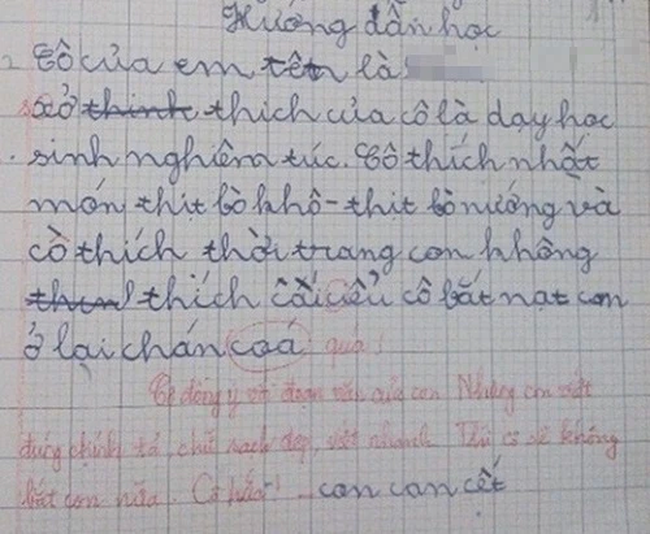 Hướng dẫn học
Cô của em tên là
sở thinh thich của cô là dạy học
sinh nghiêm túc. Cô thích nhất
món thịt bò khô - thịt bò nướng và
cô thích thời trang con không
thích cái kiểu cô bắt nạt con
ở lại chán coá quá!
Cô đồng ý với đoạn văn của con Nhưng con viết
đúng chính tả, chữ sạch đẹp, viết nhanh Thì cô sẽ không
bắt con nữa. Cô hứa! con can cết